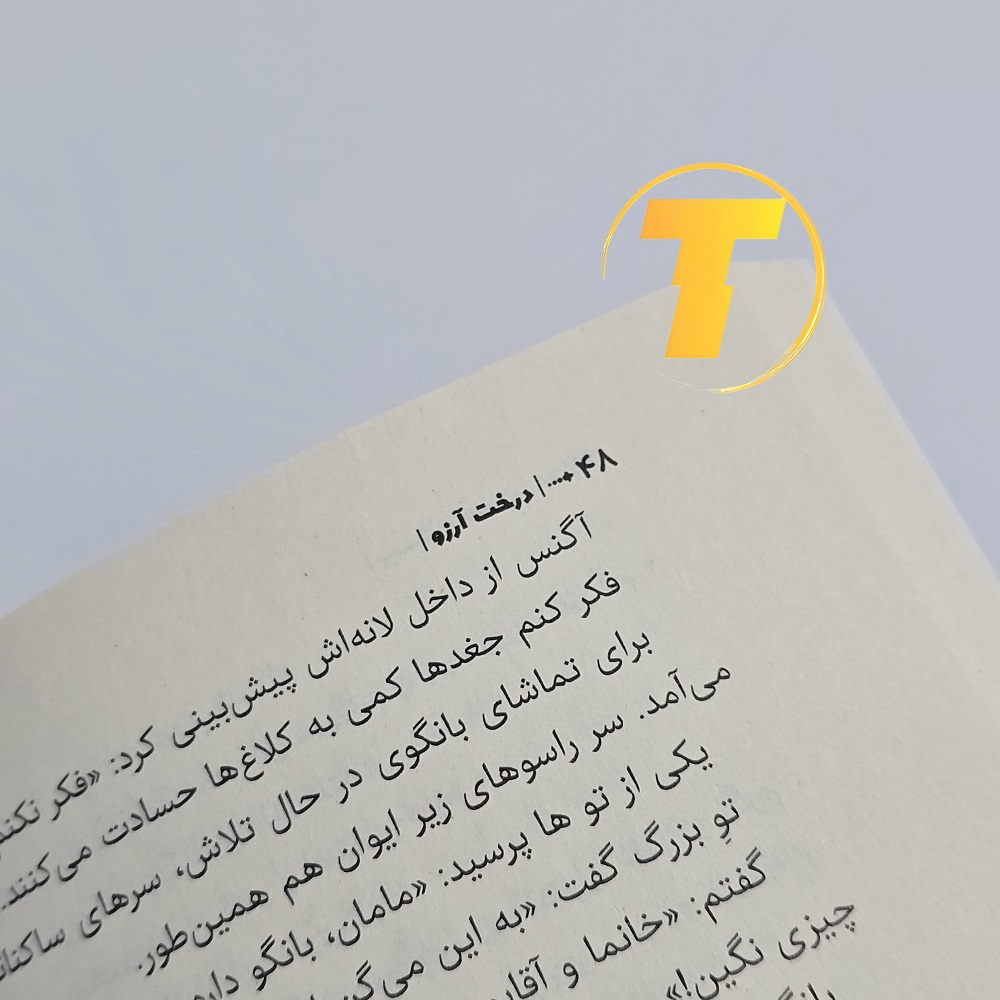 T
۴۸ ... | درخت آرزو |
آگنس از داخل لانه‌اش پیش‌بینی کرد: «فکر نکنم
فکر کنم جغدها کمی به کلاغ‌ها حسادت می‌کنند.
برای تماشای بانگوی در حال تلاش، سرهای
می‌آمد. سر راسوهای زیر ایوان هم همین‌طور.
یکی از تو ها پرسید: «مامان، بانگو
توِ بزرگ گفت: «به این
گفتم: «خانما و
چیزی نگین!»